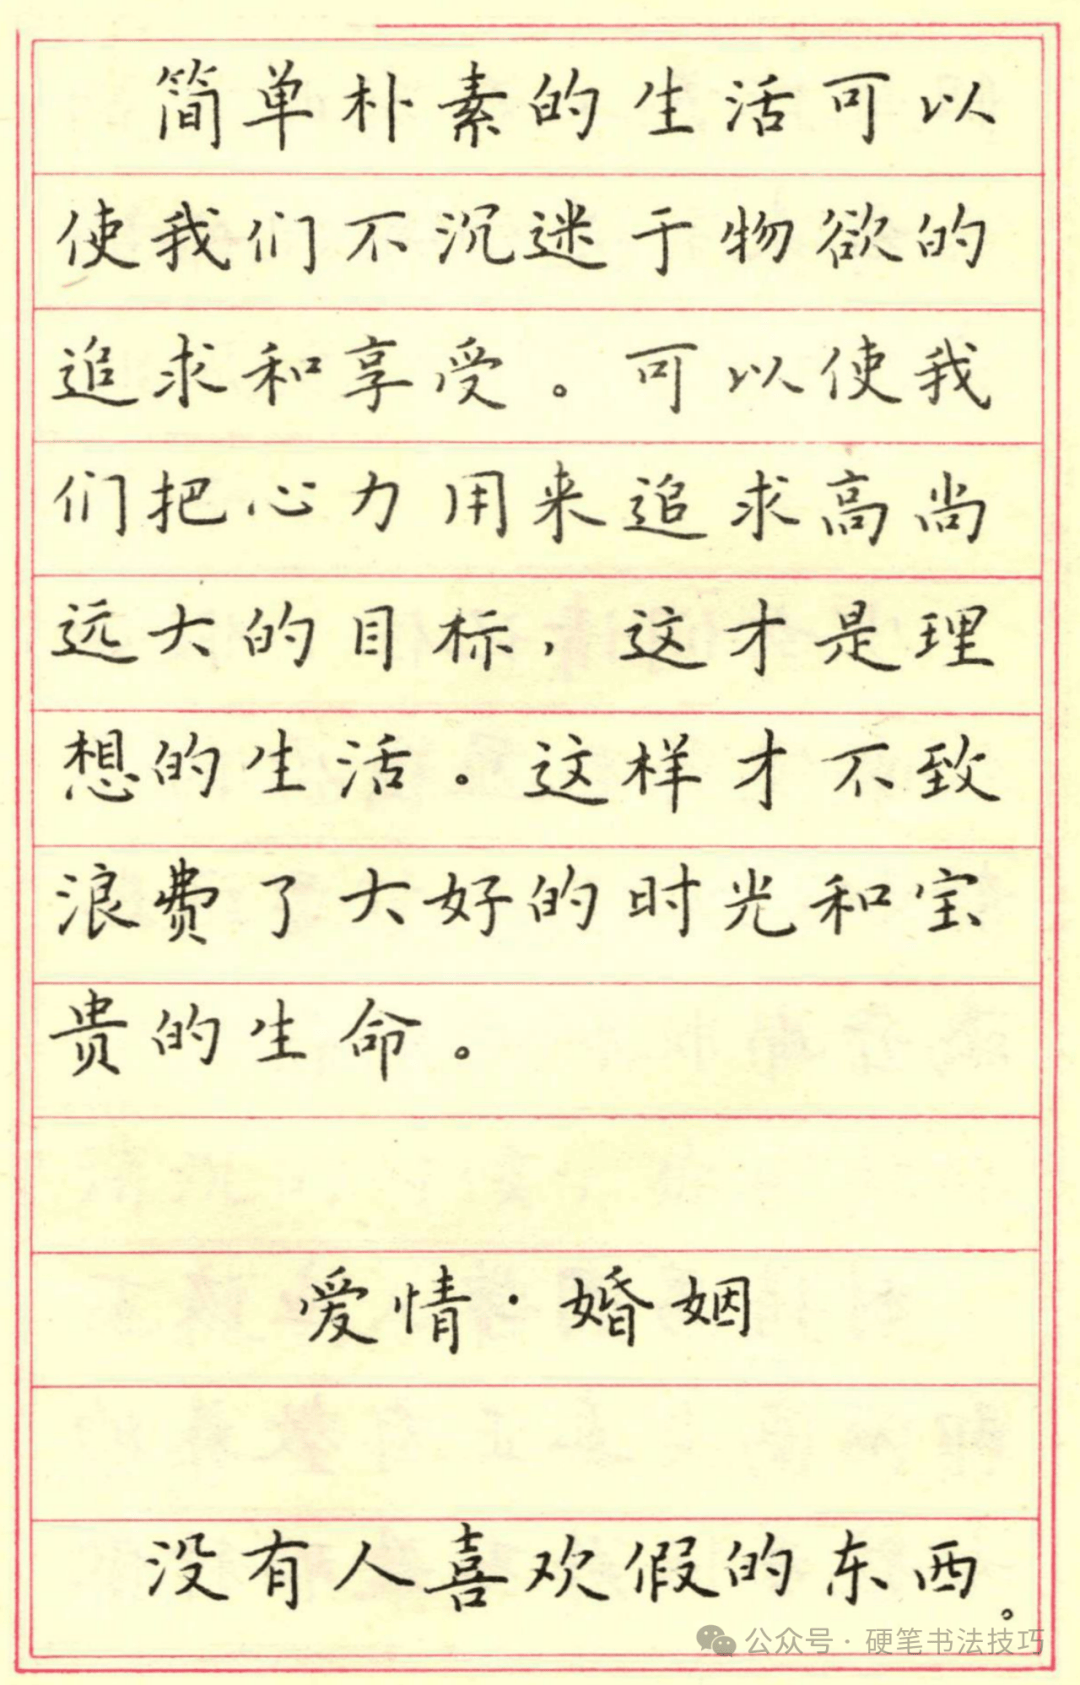 简单朴素的生活可以
使我们不沉迷于物欲的
追求和享受。可以使我
们把心力用来追求高尚
远大的目标，这才是理
想的生活。这样才不致
浪费了大好的时光和宝
贵的生命。
爱情·婚姻
没有人喜欢假的东西。
公众号·硬笔书法技巧